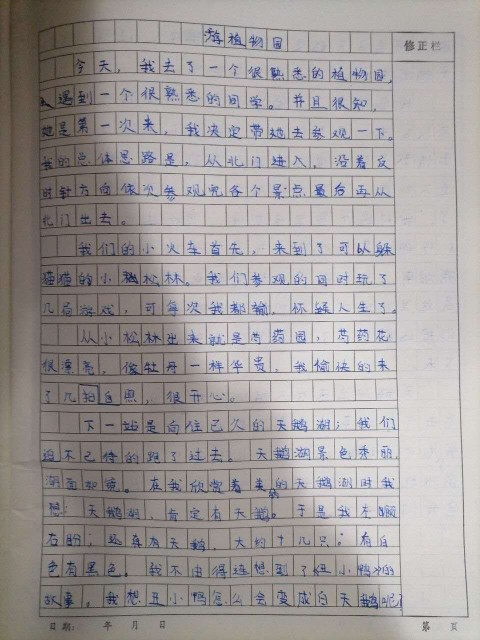 游植物园
修正栏
今天，我去了一个很熟悉的植物园，
遇到一个很熟悉的同学。并且得知，
她是第一次来，我决定带她去参观一下。
我的总体思路是，从北门进入，沿着反
时针方向依次参观完各个景点最后再从
北门出去。
我们的小火车首先，来到了可以躲
猫猫的小松林。我们参观的同时玩了
几局游戏，可每次我都输，怀疑人生了。
从小松林出来就是芍药园，芍药花
很漂亮，像牡丹一样华贵。我愉快的来
了几拍自照，很开心。
下一站是向往已久的天鹅湖；我们
迫不已待的跑了过去。天鹅湖景色秀丽，
湖面如镜。在我欣赏着美的天鹅湖时我
想：天鹅湖，肯定有天鹅。于是我左顾
右盼；还真有天鹅，大约十几只；有白
色有黑色。我不由得连想到了丑小鸭的
故事。我想丑小鸭怎么会变成白天鹅呢？
日期： 年 月 日
第 页